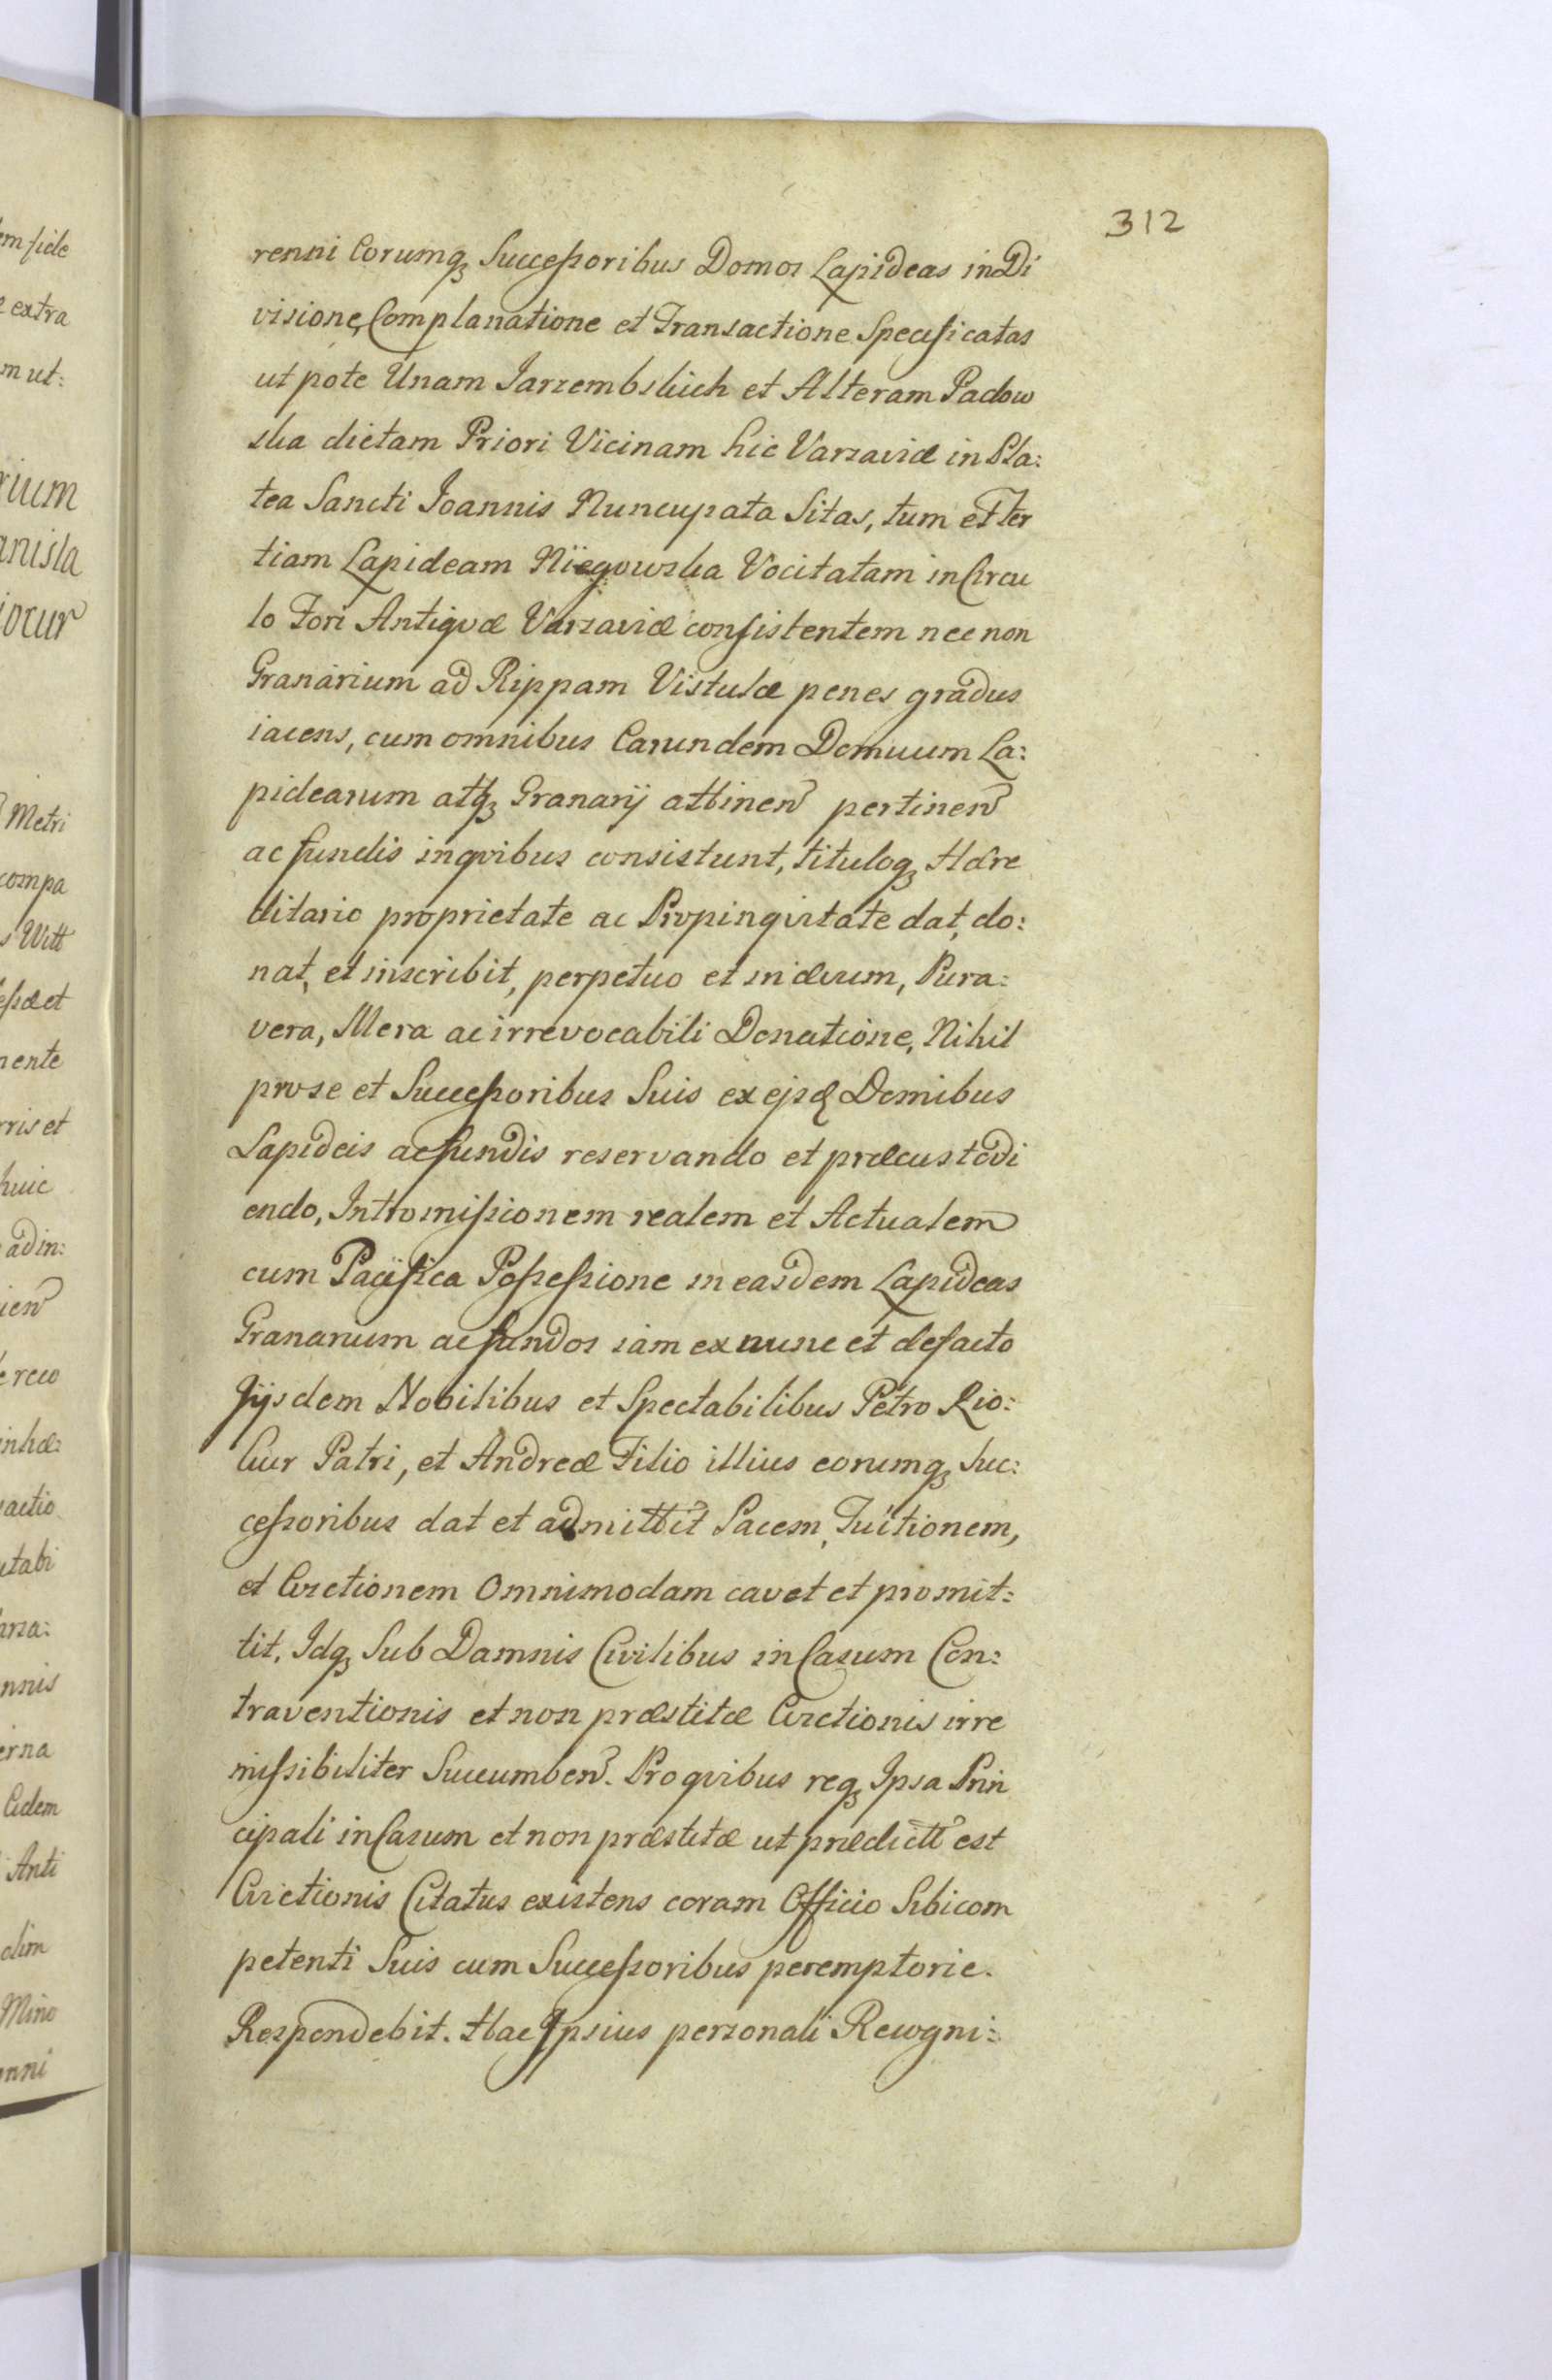 312
renni Eorumq₃ Successoribus Domos Lapideas in Di
visione, Complanatione et Transactione Specificatas
ut pote Unam Jarzembskich et Alteram Padow
ska dictam Priori Vicinam hic Varsaviæ in Pla:
tea Sancti Joannis Nuncupata Sitas, tum et Ter
tiam Lapideam Niegowska Vocitatam in Circu
lo Fori Antiqvæ Varsaviæ consistentem nec non
Granarium ad Rippam Vistulæ penes gradus
iacens, cum omnibus Earundem Domuum La:
pidearum atq₃ Granarij attinen pertinen
ac fundis in qvibus consistunt, tituloq₃ Hære
ditario proprietate ac Propinqvitate dat, do:
nat, et inscribit, perpetuo et in ævum, Pura:
vera, Mera ac irrevocabili Donatione, Nihil
pro se et Successoribus Suis ex ejsd Domibus
Lapideis ac fundis reservando et præcustodi
endo, Intromissionem realem et Actualem
cum Pacifica Possessione in easdem Lapideas
Granarium ac fundos iam ex nunc et de facto
Jijsdem Nobilibus et Spectabilibus Petro Rio:
kur Patri, et Andreæ Filio illius eorumq₃ Suc:
cessoribus dat et admittit Pacem, Tuitionem,
et Evictionem Omnimodam cavet et promit:
tit, Idq₃ Sub Damnis Civilibus in Casum Con:
traventionis et non præstitæ Evictionis irre
missibiliter Succumben. Pro qvibus req₃ Ipsa Prin
cipali in Casum et non præstitæ ut prædictt est
Evictionis Citatus existens coram Officio Sibi com
petenti Suis cum Successoribus peremptorie.
Respondebit. Hac Ipsius personali Recogni:
em fide
extra
m ut:
rium
anisla
iocur
Metri
compa
Witt
et
mente
rris et
huic
ad in:
actio
nnis
erna
Eidem
Anti
olim
Mino
nni